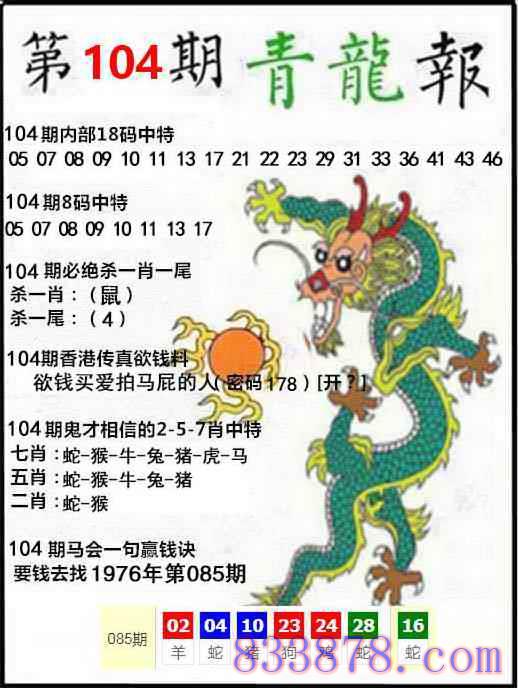 第104期青龍報
104期内部18码中特
05 07 08 09 10 11 13 17 21 22 23 29 31 33 36 41 43 46
104期8码中特
05 07 08 09 10 11 13 17
104期必绝杀一肖一尾
杀一肖：（鼠）
杀一尾：（4）
104期香港传真欲钱料
欲钱买爱拍马屁的人(密码178)[开？]
104期鬼才相信的2-5-7肖中特
七肖：蛇-猴-牛-兔-猪-虎-马
五肖：蛇-猴-牛-兔-猪
二肖：蛇-猴
104期马会一句赢钱诀
要钱去找1976年第085期
085期 02 04 10 23 24 28 16
羊 蛇 猪 狗 鸡 蛇 蛇
833878.com